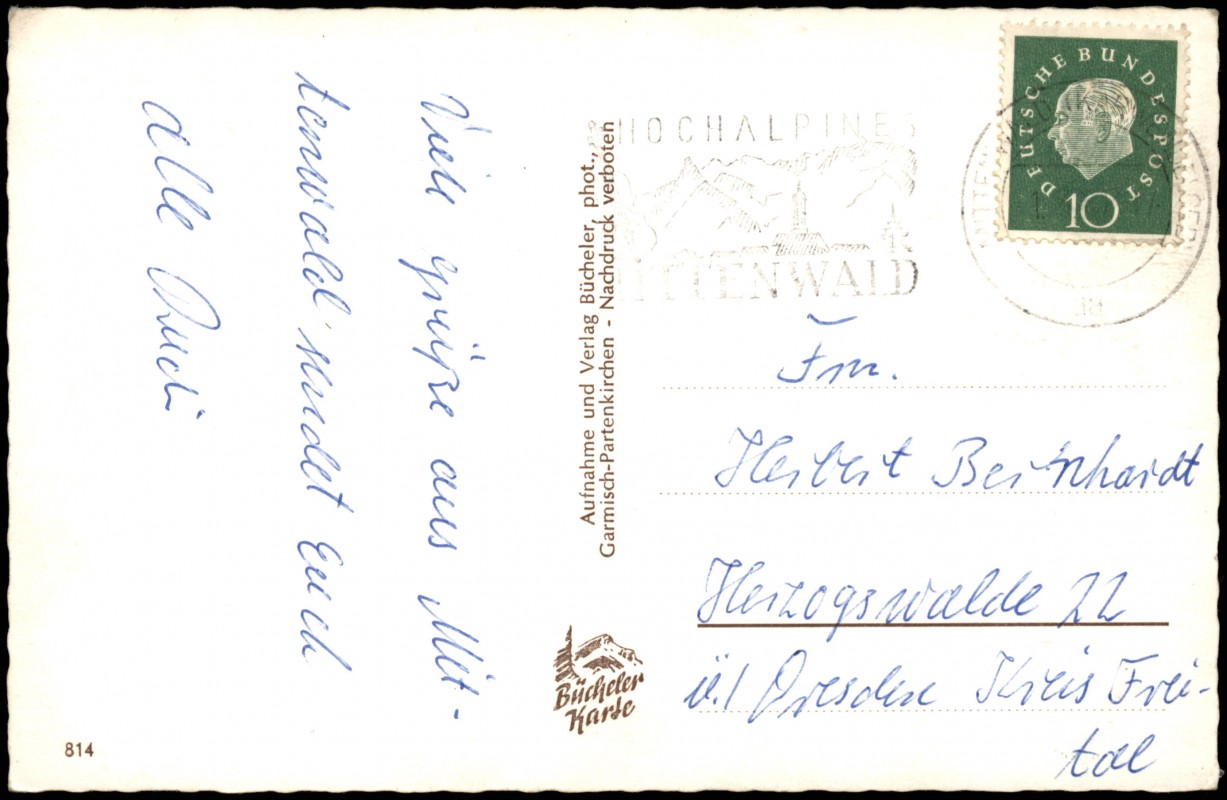 Viele Grüße aus Mit-
tenwald sendet Euch
alle Rudi
Aufnahme und Verlag Bücheler, phot.,
Garmisch-Partenkirchen - Nachdruck verboten
Bücheler
Karte
814
HOCHALPINES
MITTENWALD
DEUTSCHE BUNDESPOST
10
Fm.
Herbert Bernhardt
Herzogswalde 22
ü./ Dresden Kreis Frei-
tal